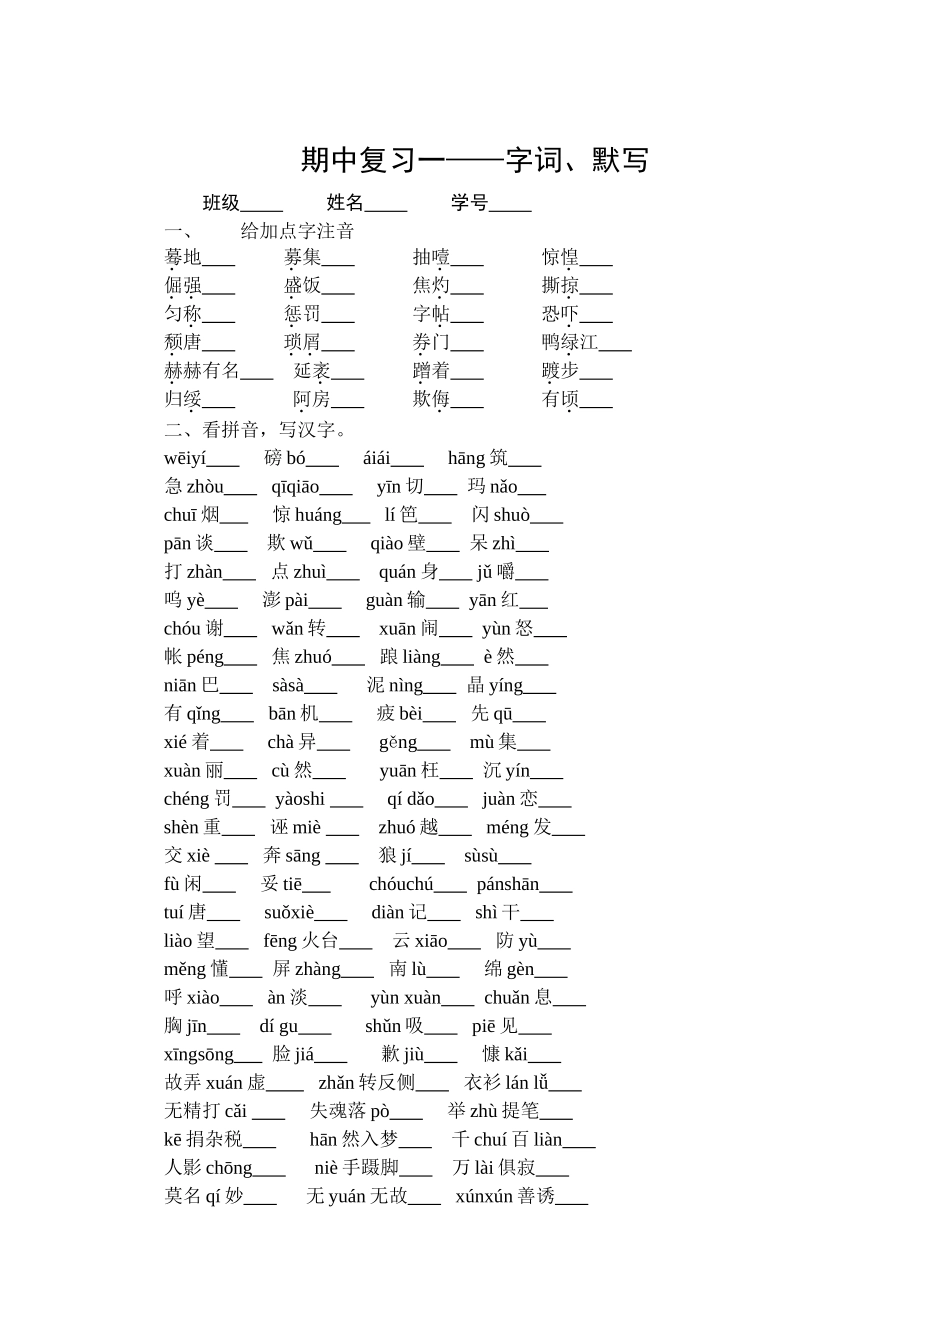 期中复习一——字词、默写
班级____ 姓名____ 学号____
一、 给加点字注音
蓦地____ 募集____ 抽噎____ 惊惶____
倔强____ 盛饭____ 焦灼____ 撕掠____
匀称____ 惩罚____ 字帖____ 恐吓____
颓唐____ 琐屑____ 券门____ 鸭绿江____
赫赫有名____ 延袤____ 蹭着____ 踱步____
归绥____ 阿房____ 欺侮____ 有顷____
二、看拼音，写汉字。
wēiyí____ 磅 bó____ áiái____ hāng 筑____
急 zhòu____ qīqiāo____ yīn 切____ 玛 nǎo___
chuī 烟___ 惊 huáng___ lí 笆____ 闪 shuò____
pān 谈____ 欺 wǔ____ qiào 壁____ 呆 zhì____
打 zhàn____ 点 zhuì____ quán 身____ jǔ 嚼____
呜 yè____ 澎 pài____ guàn 输____ yān 红___
chóu 谢____ wǎn 转____ xuān 闹____ yùn 怒____
帐 péng____ 焦 zhuó____ 踉 liàng____ è 然____
niān 巴____ sàsà____ 泥 nìng____ 晶 yíng____
有 qǐng____ bān 机____ 疲 bèi____ 先 qū____
xié 着____ chà 异____ gěng____ mù 集____
xuàn 丽____ cù 然____ yuān 枉____ 沉 yín____
chéng 罚____ yàoshi ____ qí dǎo____ juàn 恋____
shèn 重____ 诬 miè ____ zhuó 越____ méng 发____
交 xiè ____ 奔 sāng ____ 狼 jí____ sùsù____
fù 闲____ 妥 tiē___ chóuchú____ pánshān____
tuí 唐____ suǒxiè____ diàn 记____ shì 干____
liào 望____ fēng 火台____ 云 xiāo____ 防 yù____
měng 懂____ 屏 zhàng____ 南 lù____ 绵 gèn____
呼 xiào____ àn 淡____ yùn xuàn____ chuǎn 息____
胸 jīn____ dí gu____ shǔn 吸____ piē 见____
xīngsōng___ 脸 jiá____ 歉 jiù____ 慷 kǎi____
故弄 xuán 虚____ zhǎn 转反侧____ 衣衫 lán lǚ____
无精打 cǎi ____ 失魂落 pò____ 举 zhù 提笔____
kē 捐杂税____ hān 然入梦____ 千 chuí 百 liàn____
人影 chōng____ niè 手蹑脚____ 万 lài 俱寂____
莫名 qí 妙____ 无 yuán 无故____ xúnxún 善诱____